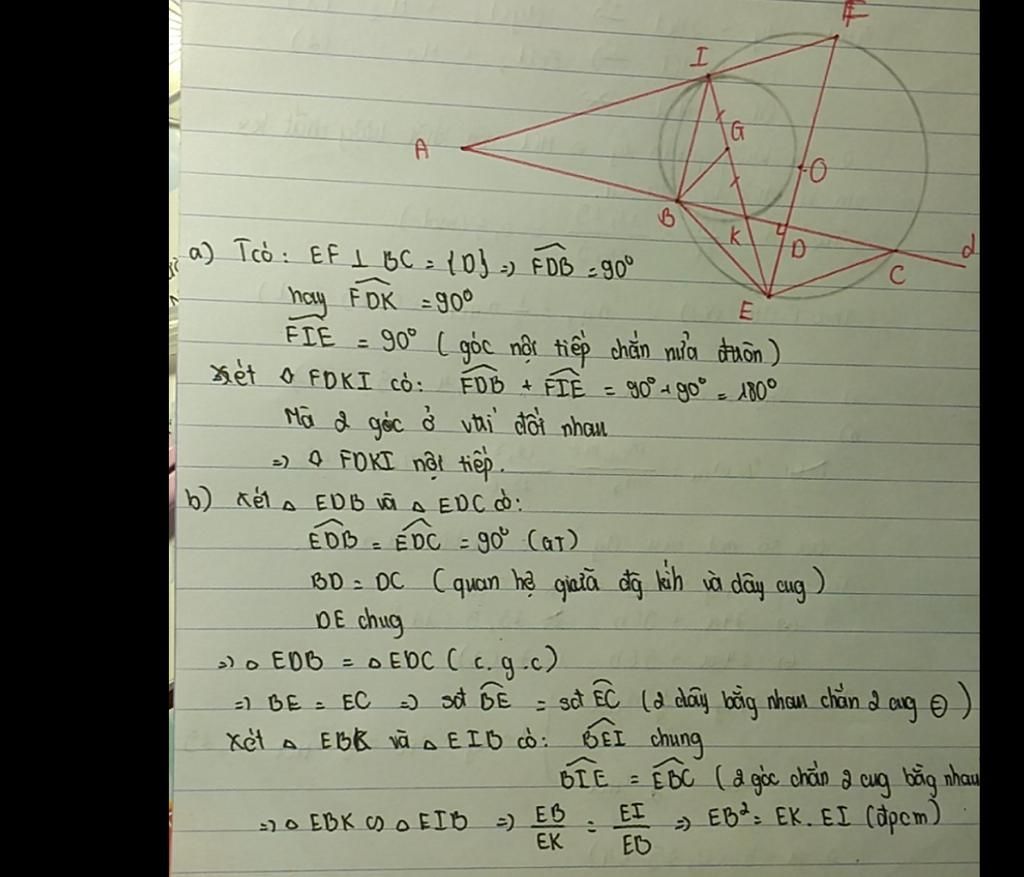 F
I
G
A
O
B
K
D
d
C
E
a) Tcó: EF ⊥ BC = {D} => FDB = 90°
hay FDK = 90°
FIE = 90° (góc nội tiếp chắn nửa đuòn)
xét ◊ FDKI có: FDB + FIE = 90° + 90° = 180°
Mà 2 góc ở vtrí đối nhau
=> ◊ FDKI nội tiếp.
b) Xét △ EDB và △ EDC có:
EDB = EDC = 90° (GT)
BD = DC (quan hệ giữa đg kính và dây cug)
DE chug
=> △ EDB = △ EDC (c.g.c)
=> BE = EC => sđ BE = sđ EC (2 dây bằng nhau chắn 2 cug ⊖)
Xét △ EBK và △ EIB có: BEI chung
BIE = EBC (2 góc chắn 2 cug bằng nhau
=> △ EBK ∽ △ EIB => EB/EK = EI/EB => EB² = EK. EI (đpcm)